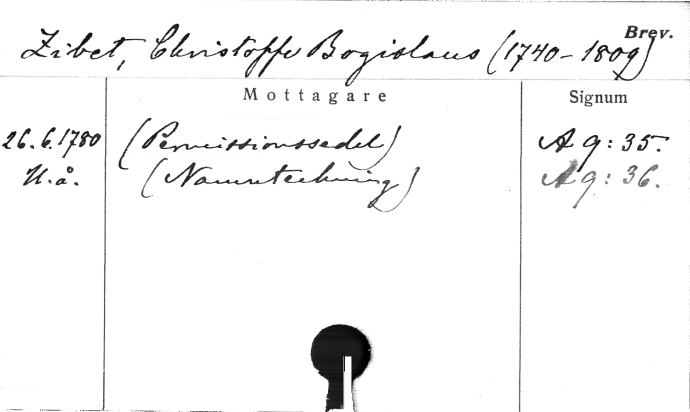 Brev.
Zibet, Christoffer Bogislaus (1740-1809)
Mottagare Signum
26.6.1780 (Permissionssedel) A 9:35.
U.å. (Namnteckning) A 9:36.